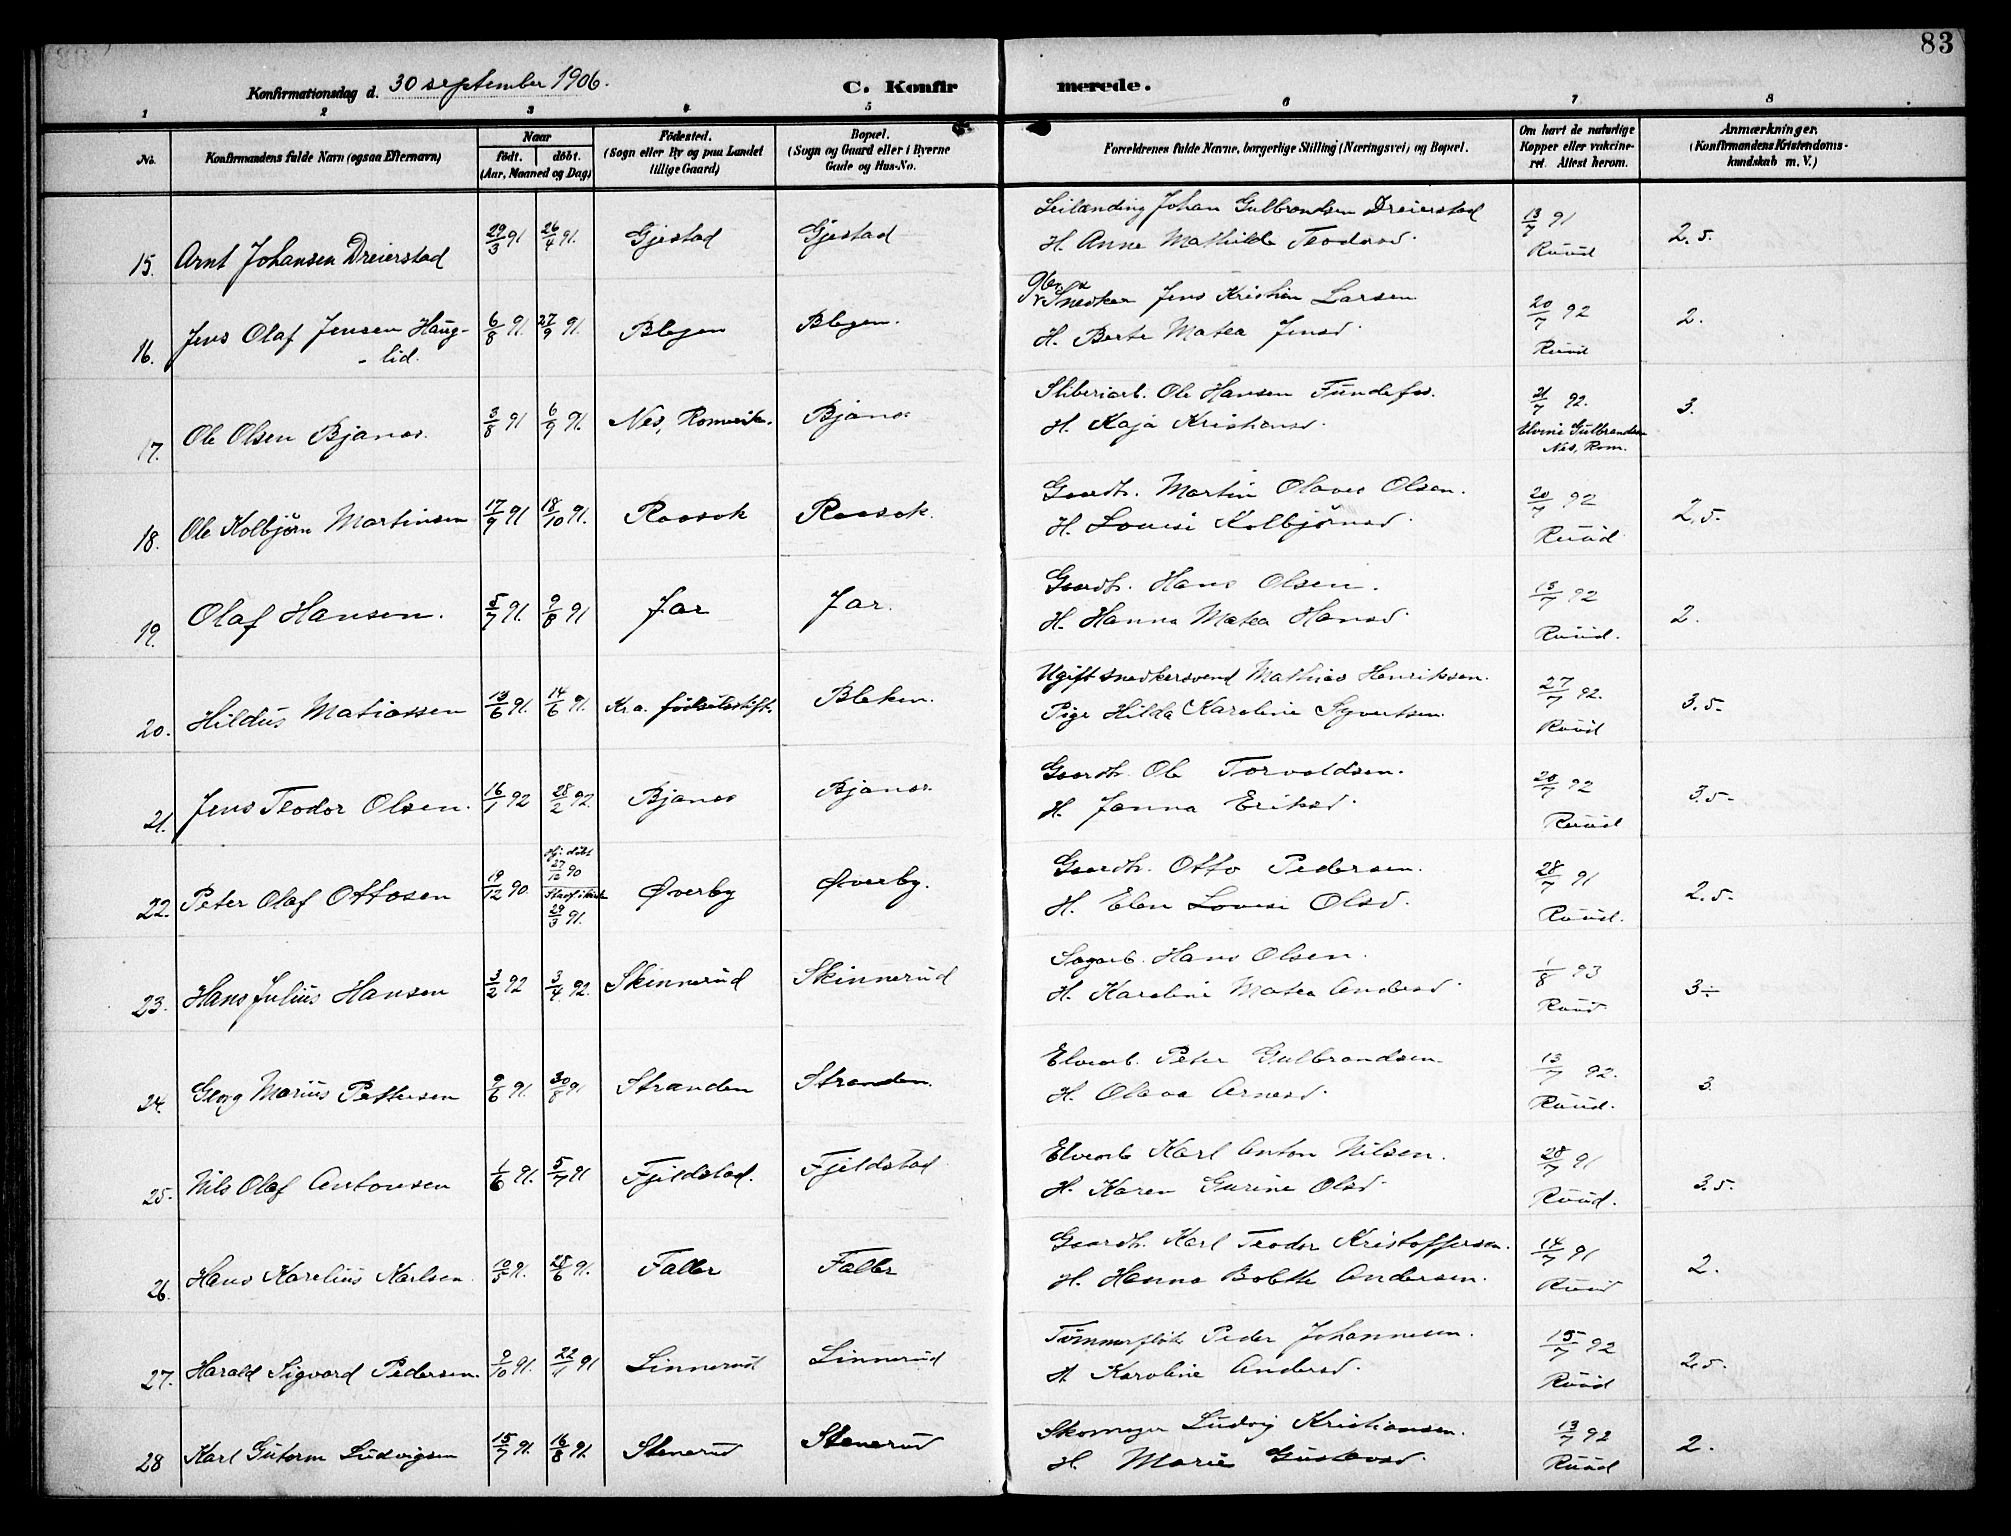 83
Konfirmationsdag d. 30 september 1906.
C. Konfirmerede.
1 2 3 4 5 6 7 8
No. Konfirmandens fulde Navn (ogsaa Efternavn) Naar født. døbt. (Aar, Maaned og Dag) Fødested. (Sogn eller By og paa Landet tillige Gaard) Bopæl. (Sogn og Gaard eller i Byerne Gade og Hus-No. Forældrenes fulde Navne, borgerlige Stilling (Næringsvei) og Bopæl. Om havt de naturlige Kopper eller vakcineret. Attest herom. Anmærkninger. (Konfirmandens Kristendomskundskab m. V.)
15. Arnt Johansen Dreierstad 29/3 91 26/4 91. Gjestad Gjestad Leilænding Johan Gulbrandsen Dreierstad 13/7 91 2.5.
H. Anne Mathilde Teodorsd. Ruud
16. Jens Olaf Jensen Haug- 6/8 91. 27/9 91. Blegen Blegen. Snedker Jens Kristian Larsen 20/7 92 2.
- lid. H. Berte Matea Jensd. Ruud
17. Ole Olsen Bjanes. 3/8 91 6/9 91. Nes, Romerike. Bjanes Sliberiarb. Ole Hansen Fundefos. 21/7 92. 3.
H. Kaja Kristiansd. Elvine Gulbrandsen
Nes, Rom.
18. Ole Kolbjørn Martinsen 17/9 91 18/10 91. Raasok Raasok. Gaardb. Martin Olaves Olsen. 20/7 92 2,5.
H. Louise Kolbjørnsd. Ruud
19. Olaf Hansen. 5/7 91. 9/8 91 Jar Jar. Gaardb. Hans Olsen. 13/7 92 2.
H. Hanna Matea Hansd. Ruud.
20. Hildus Matiassen 13/6 91. 14/6 91. Kra. fødselsstift. Bleken. Ugift snedkersvend Mathias Henriksen. 27/7 92. 3.5.
Pige Hilda Karoline Syvertsen. Ruud
21. Jens Teodor Olsen. 16/1 92 28/2 92. Bjanes Bjanes. Gaardb. Ole Torvaldsen. 20/7 92 3.5.
H. Janna Eriksd. Ruud
22. Peter Olaf Ottosen 19/12 90. Hj. døbt 27/12 90 Stadf. i kirk 29/3 91. Øverby Øverby. Gaardb. Otto Pedersen. 28/7 91 2.5.
H. Elen Louise Olsd. Ruud.
23. Hans Julius Hansen 3/2 92 3/4 92. Skinnerud Skinnerud Sagarb. Hans Olsen. 1/8 93 3÷
H. Karoline Matea Andersd. Ruud
24. Georg Marius Pettersen 9/6 91. 30/8 91 Stranden Stranden. Elvearb. Peter Gulbrandsen 13/7 92. 3.
H. Olava Arnesd. Ruud.
25. Nils Olaf Antonsen 1/6 91. 5/7 91 Fjeldstad. Fjeldstad Elvearb. Karl Anton Nilsen. 28/7 91 3.5.
H. Karen Gurine Olsd. Ruud.
26. Hans Karelius Karlsen. 10/5 91. 28/6 91. Faller Faller Gaardb. Karl Teodor Kristoffersen. 14/7 91 2.
H. Hanna Bolette Andersen. Ruud
27. Harald Sigvard Pedersen. 9/10 91. 22/11 91 Linnerud Linnerud Tømmerfløt. Peder Johannesen. 15/7 92 2.5.
H. Karoline Andersd. Ruud
28 Karl Gutorm Ludvigsen 15/7 91. 16/8 91 Stenerud Stenerud Skomager Ludvig Kristiansen. 13/7 92 2.
H. Marie Gustavsd. Ruud